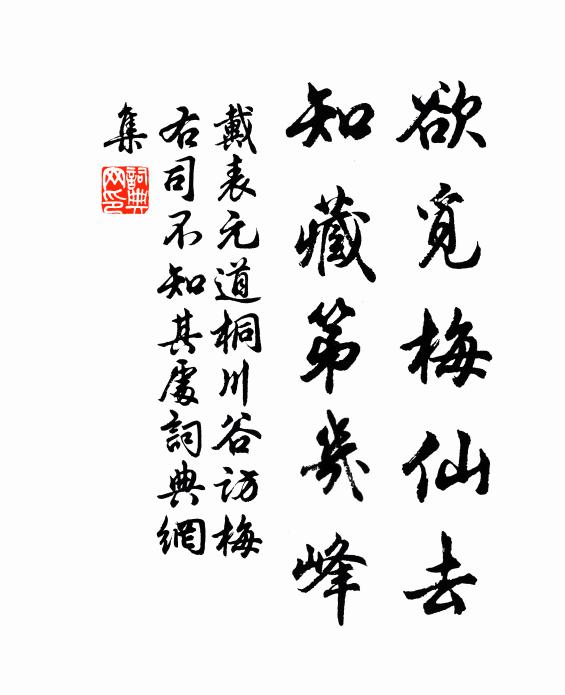 欲覓梅仙去
知藏第幾峰
戴表元道桐川谷訪梅
右司不知其處詞典網
集
詞典
网印